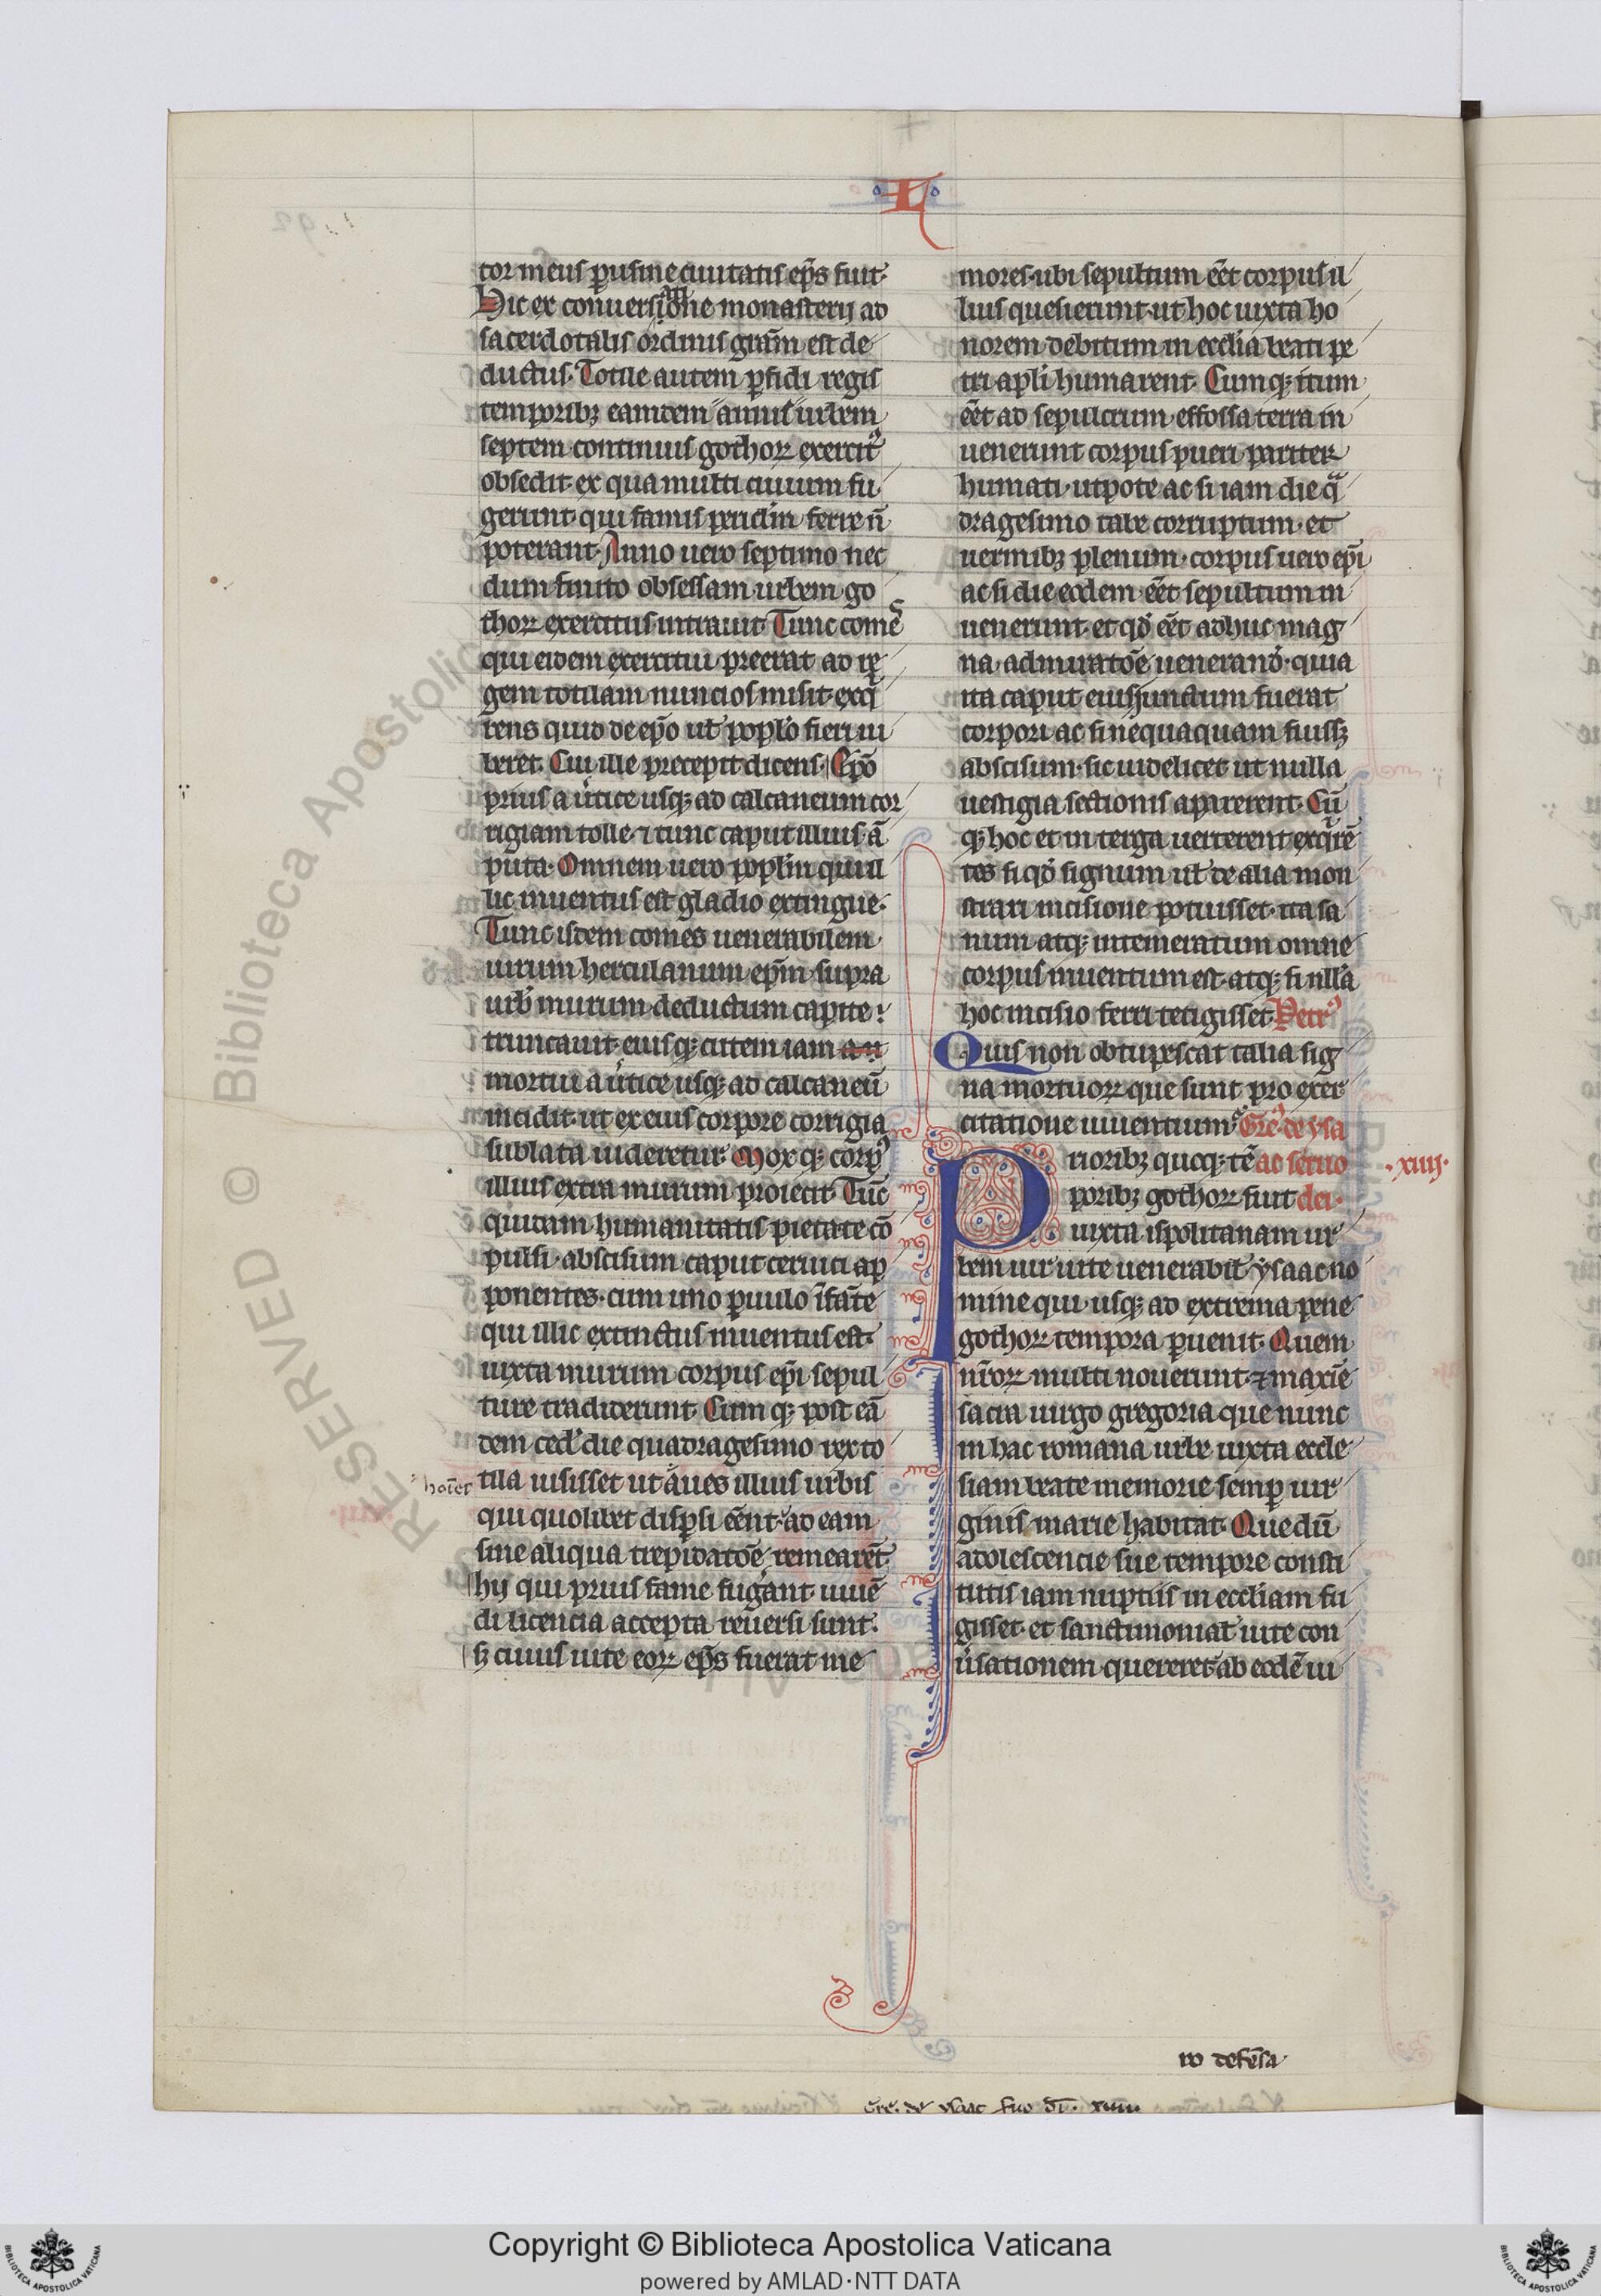 L
tor meus pusine ciuitatis ep̄s fuit·
Hic ex conuersione monasterij ad
sacerdotalis ordinis grām est de
ductus. Totile autem ꝑfidi regis
temporibꝫ eamdem annis urbem
septem continuis gothoꝝ exercitꝰ
obsedit· ex qua multi ciuium fu
gerunt· qui famis periclm̄ ferre n̄
poterant· Anno uero septimo nec
dum finito obsessam urbem go
thoꝝ exercitus intrauit· Tunc come᷒
qui eidem exercitui preerat ad re
gem totilam nuncios misit· exq̄
rens quid de ep̄o ul̓ pop̄lo fieri iu
beret. Cui ille precepit dicens. Ep̄o
prius a u̓tice usqꝫ ad calcaneum cor
rigiam tolle· ⁊ tunc caput illius ā
puta· Omnem uero pop̄lm qui il
lic inuentus est gladio extingue·
Tunc isdem comes uenerabilem
uirum herculanum ep̄m supra
urb̓ murum deductum capite
truncauit· eiusqꝫ cutem iam an
mortui a u̓tice usqꝫ ad calcaneū
incidit· ut ex eius corpore corrigia
sublata uideretur· Moxqꝫ corpꝰ
illius extra murum proiecit· Tūc
quidam humanitatis pietate cō
pulsi· abscisum caput ceruici ap
ponentes· cum uno ꝑuulo īfāte
qui illic extinctus inuentus est·
iuxta murum corpus ep̄i sepul
ture tradiderunt· Cumqꝫ post eā
dem ced̓ die quadragesimo rex to
tila iusisset ut ciues illius urbis
qui quolibet disꝑsi eēnt· ad eam
sine aliqua trepidatōe remearēt·
hij qui prius fame fugāt uiuē
di licencia accepta reuersi sunt·
Sꝫ cuius uite eoꝝ ep̄s fuerat me
mores· ubi sepultum eēt corpus il
lius quesierunt· ut hoc iuxta ho
norem debitum in eccl̄ia beati pe
tri apl̄i humarent· Cumqꝫ itum
eēt ad sepulcrum· effossa terra in
uenerunt corpus pueri pariter
humati· utpote ac si iam die qᵃ
dragesimo tabe corruptum· et
uermibꝫ plenum· corpus uero ep̄i
ac si die eodem eēt sepultum in
uenerunt· et qđ eēt adhuc mag
na admiratōe uenerand̓· quia
ita caput eius iunctum fuerat
corpori ac si nequaquam fuissꝫ
abscisum· sic uidelicet ut nulla
uestigia sectionis aparerent· Cū
qꝫ hoc et in terga uerterent exq̄rē
tes si qđ signum ul̓ de alia mon
strari incisione potuisset· ita sa
num atqꝫ intemeratum omne
corpus inuentum est· atqꝫ si nll̓a
hoc incisio ferri tetigisset· Petrꝰ
Quis non obtupescat talia sig
na mortuoꝝ que sunt pro exer
citatione uiuentium· Grē· de ysa
Prioribꝫ quoqꝫ tē ac seruo ·xiiij·
poribꝫ gothoꝝ fuit dei·
iuxta ispolitanam ur
bem uir uite uenerabil̓ ysaac no
mine qui usqꝫ ad extrema pene
gothoꝝ tempora ꝑuenit· Quem
nr̄oꝝ multi nouerunt· ⁊ maxīe
sacra uirgo gregoria que nunc
in hac romana urbe iuxta eccle
siam beate memorie semꝑ uir
ginis marie habitat· Que dū
adolescencie sue tempore consti
tutis iam nuptiis in eccl̄iam fu
gisset· et sanctimonial̓ uite con
u̓sationem quereret· ab eodē ui
ro defēsa
Grē. de ysaac suo dī. xiiii.
Copyright © Biblioteca Apostolica Vaticana
powered by AMLAD·NTT DATA